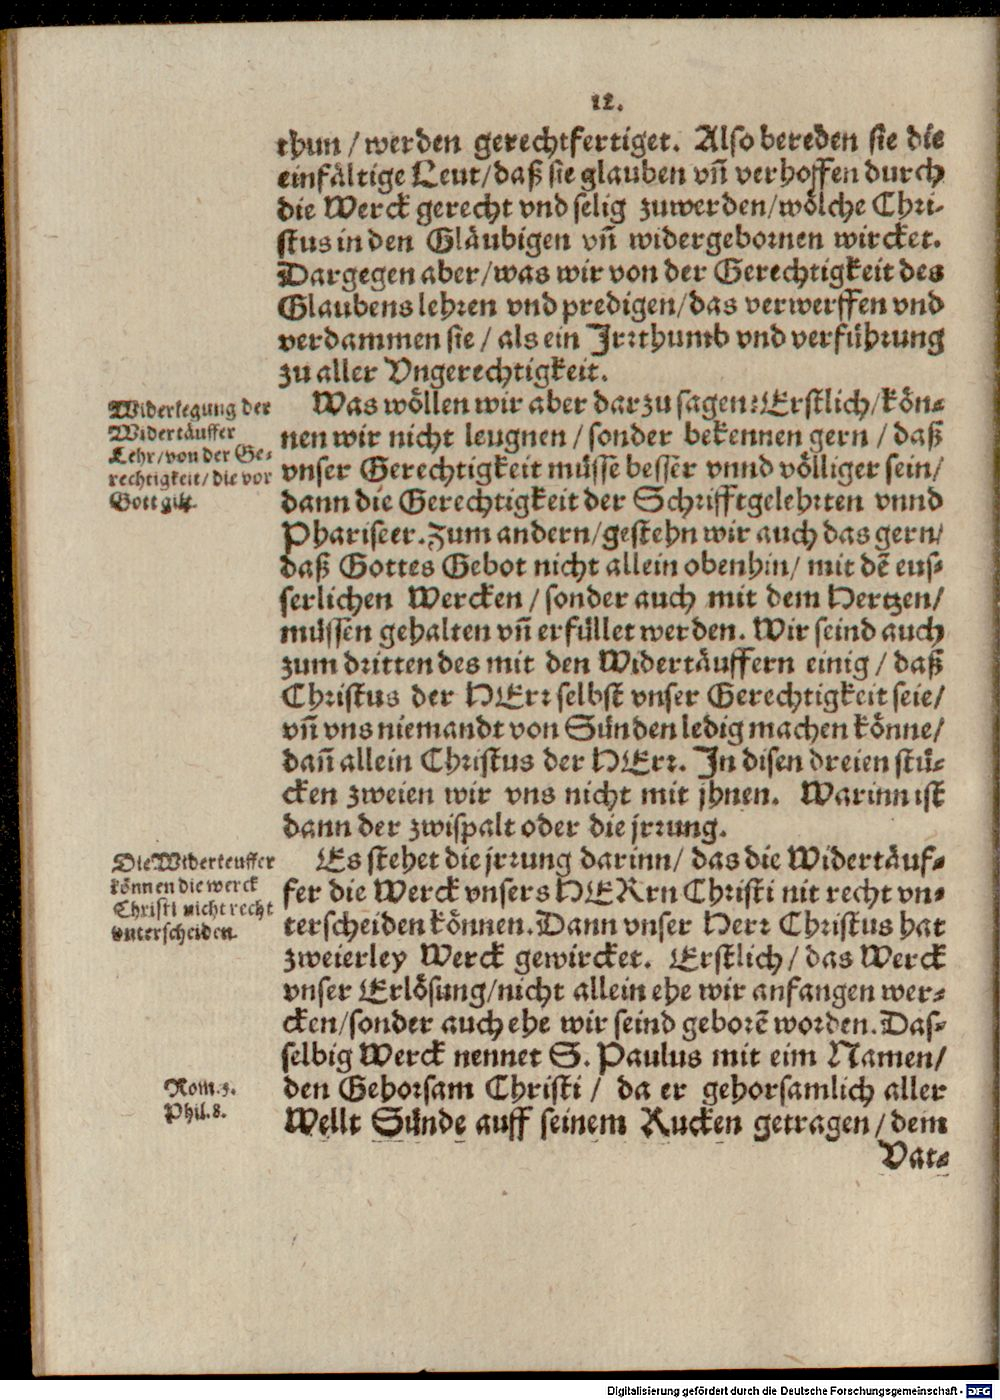 12.
thun / werden gerechtfertiget. Also bereden sie die
einfältige Leut/daß sie glauben vn̄ verhoffen durch
die Werck gerecht vnd selig zuwerden/wölche Chri-
stus in den Gläubigen vn̄ widergebornen wircket.
Dargegen aber/was wir von der Gerechtigkeit des
Glaubens lehren vnd predigen/das verwerffen vnd
verdammen sie / als ein Irrthumb vnd verführung
zu aller Vngerechtigkeit.
Widerlegung der
Widertäuffer
Lehr/von der Ge-
rechtigkeit/die vor
Gott gilt.
Was wöllen wir aber darzu sagen? Erstlich/kön-
nen wir nicht leugnen / sonder bekennen gern / daß
vnser Gerechtigkeit müsse besser vnnd völliger sein/
dann die Gerechtigkeit der Schrifftgelehrten vnnd
Phariseer. Zum andern/gestehn wir auch das gern/
daß Gottes Gebot nicht allein obenhin/ mit dē eus-
serlichen Wercken / sonder auch mit dem Hertzen/
müssen gehalten vn̄ erfüllet werden. Wir seind auch
zum dritten des mit den Widertäuffern einig / daß
Christus der HErr selbst vnser Gerechtigkeit seie/
vn̄ vns niemandt von Sünden ledig machen könne/
dan̄ allein Christus der HErr. In disen dreien stü-
cken zweien wir vns nicht mit jhnen. Warinn ist
dann der zwispalt oder die jrrung.
Die Widerteuffer
können die werck
Christi nicht recht
vnterscheiden.
Es stehet die jrrung darinn/ das die Widertäuf-
fer die Werck vnsers HERrn Christi nit recht vn-
terscheiden können. Dann vnser Herr Christus hat
zweierley Werck gewircket. Erstlich / das Werck
vnser Erlösung/nicht allein ehe wir anfangen wer-
cken/sonder auch ehe wir seind geborē worden. Das-
selbig Werck nennet S. Paulus mit eim Namen/
Rom. 5.
Phil. 8.
den Gehorsam Christi / da er gehorsamlich aller
Wellt Sünde auff seinem Rucken getragen / dem
Vat-
Digitalisierung gefördert durch die Deutsche Forschungsgemeinschaft - DFG